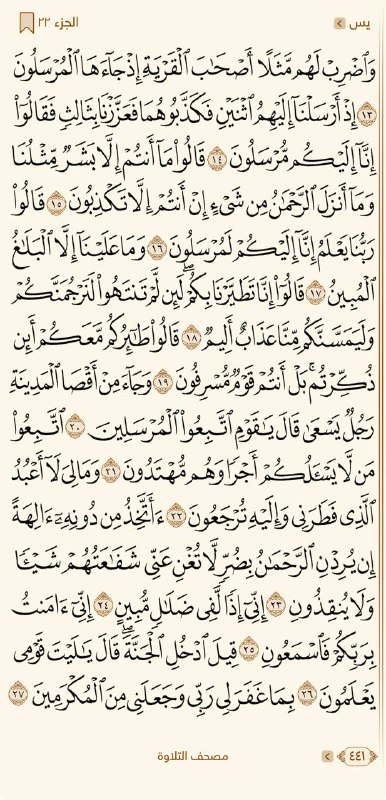 يس
الجزء ٢٢
وَٱضْرِبْ لَهُم مَّثَلًا أَصْحَٰبَ ٱلْقَرْيَةِ إِذْ جَآءَهَا ٱلْمُرْسَلُونَ
١٣ إِذْ أَرْسَلْنَآ إِلَيْهِمُ ٱثْنَيْنِ فَكَذَّبُوهُمَا فَعَزَّزْنَا بِثَالِثٍ فَقَالُوٓا۟
إِنَّآ إِلَيْكُم مُّرْسَلُونَ ١٤ قَالُوا۟ مَآ أَنتُمْ إِلَّا بَشَرٌ مِّثْلُنَا
وَمَآ أَنزَلَ ٱلرَّحْمَٰنُ مِن شَىْءٍ إِنْ أَنتُمْ إِلَّا تَكْذِبُونَ ١٥ قَالُوا۟
رَبُّنَا يَعْلَمُ إِنَّآ إِلَيْكُمْ لَمُرْسَلُونَ ١٦ وَمَا عَلَيْنَآ إِلَّا ٱلْبَلَٰغُ
ٱلْمُبِينُ ١٧ قَالُوٓا۟ إِنَّا تَطَيَّرْنَا بِكُمْ ۖ لَئِن لَّمْ تَنتَهُوا۟ لَنَرْجُمَنَّكُمْ
وَلَيَمَسَّنَّكُم مِّنَّا عَذَابٌ أَلِيمٌ ١٨ قَالُوا۟ طَٰٓئِرُكُم مَّعَكُمْ ۚ أَئِن
ذُكِّرْتُم ۚ بَلْ أَنتُمْ قَوْمٌ مُّسْرِفُونَ ١٩ وَجَآءَ مِنْ أَقْصَا ٱلْمَدِينَةِ
رَجُلٌ يَسْعَىٰ قَالَ يَٰقَوْمِ ٱتَّبِعُوا۟ ٱلْمُرْسَلِينَ ٢٠ ٱتَّبِعُوا۟
مَن لَّا يَسْـَٔلُكُمْ أَجْرًا وَهُم مُّهْتَدُونَ ٢١ وَمَا لِىَ لَآ أَعْبُدُ
ٱلَّذِى فَطَرَنِى وَإِلَيْهِ تُرْجَعُونَ ٢٢ ءَأَتَّخِذُ مِن دُونِهِۦٓ ءَالِهَةً
إِن يُرِدْنِ ٱلرَّحْمَٰنُ بِضُرٍّ لَّا تُغْنِ عَنِّى شَفَٰعَتُهُمْ شَيْـًٔا
وَلَا يُنقِذُونِ ٢٣ إِنِّىٓ إِذًا لَّفِى ضَلَٰلٍ مُّبِينٍ ٢٤ إِنِّىٓ ءَامَنتُ
بِرَبِّكُمْ فَٱسْمَعُونِ ٢٥ قِيلَ ٱدْخُلِ ٱلْجَنَّةَ ۖ قَالَ يَٰلَيْتَ قَوْمِى
يَعْلَمُونَ ٢٦ بِمَا غَفَرَ لِى رَبِّى وَجَعَلَنِى مِنَ ٱلْمُكْرَمِينَ ٢٧
٤٤١
مصحف التلاوة